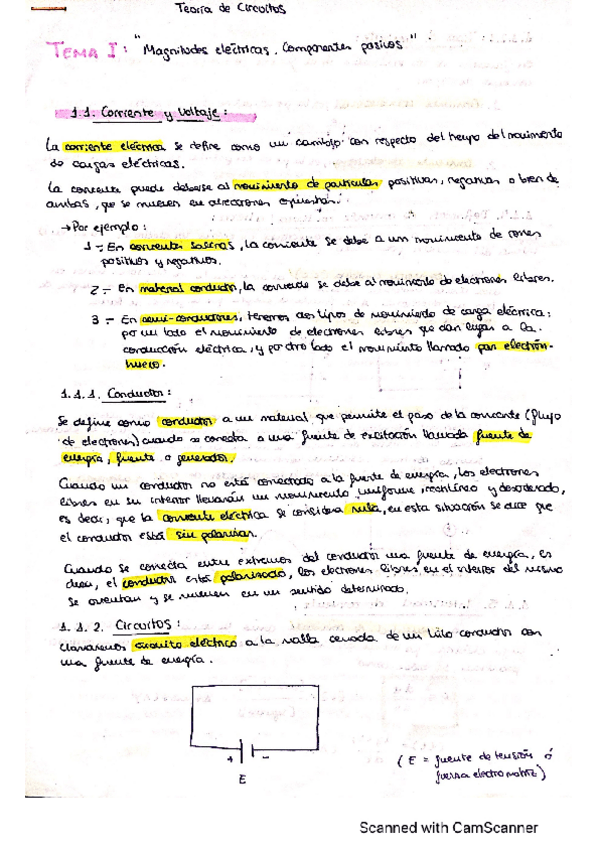 Teoría de Circuitos
TEMA I: "Magnitudes eléctricas. Componentes pasivos"
1.1. Corriente y Voltaje:
La corriente eléctrica se define como un cambio con respecto del tiempo del movimiento
de cargas eléctricas.
La corriente puede deberse al movimiento de partículas positivas, negativas o bien de
ambas, que se mueven en direcciones opuestas.
→Por ejemplo:
1 :- En corrientes salinas, la corriente se debe a un movimiento de iones
positivos y negativos.
2 :- En material conductor, la corriente se debe al movimiento de electrones libres.
3 :- En semi-conductores, tenemos dos tipos de movimiento de carga eléctrica:
por un lado el movimiento de electrones libres que dan lugar a la
conducción eléctrica, y por otro lado el movimiento llamado par electrón-
hueco.
1.1.1. Conductor:
Se define como conductor a un material que permite el paso de la corriente (flujo
de electrones) cuando se conecta a una fuente de excitación llamada fuente de
energía, fuente o generador.
Cuando un conductor no está conectado a la fuente de energía, los electrones
libres en su interior llevarán un movimiento uniforme, rectilíneo y desordenado,
es decir, que la corriente eléctrica se considera nula, en esta situación se dice que
el conductor está sin polarizar.
Cuando se conecta entre extremos del conductor una fuente de energía, es
decir, el conductor está polarizado, los electrones libres en el interior del mismo
se orientan y se mueven en un sentido determinado.
1.1.2. Circuitos:
Llamaremos circuito eléctrico a la malla cerrada de un hilo conductor con
una fuente de energía.
+ -
E
(E = fuente de tensión ó
fuerza electromotriz)
Scanned with CamScanner